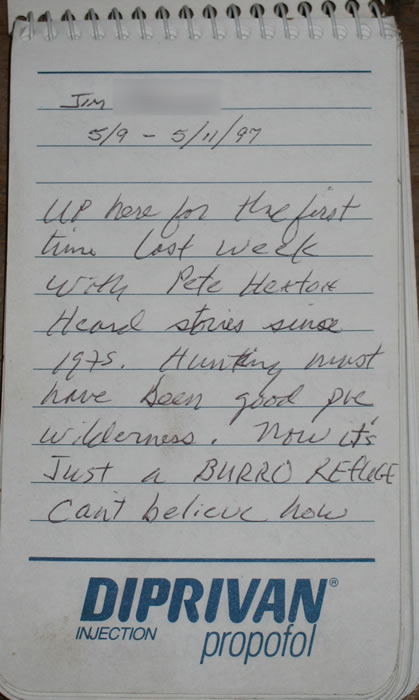 Jim
5/9 - 5/11/97
Up here for the first
time last week
with Pete
Heard stories since
1975. Hunting must
have been good pre
wilderness. Now it's
Just a BURRO REFUGE
Can't believe how
DIPRIVAN®
INJECTION propofol